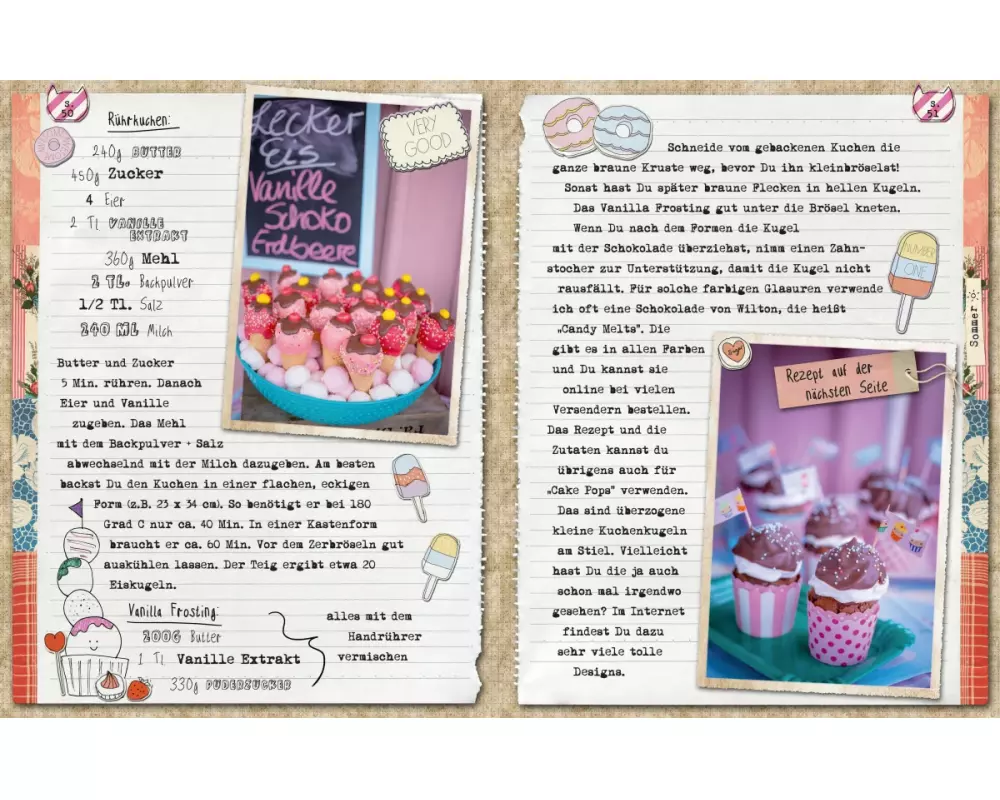 S. 50
Rührkuchen:
240g BUTTER
450g Zucker
4 Eier
2 Tl VANILLE
EXTRAKT
360g Mehl
2 TL. Backpulver
1/2 Tl. Salz
240 ML Milch
Butter und Zucker
5 Min. rühren. Danach
Eier und Vanille
zugeben. Das Mehl
mit dem Backpulver + Salz
abwechselnd mit der Milch dazugeben. Am besten
backst Du den Kuchen in einer flachen, eckigen
Form (z.B. 23 x 34 cm). So benötigt er bei 180
Grad C nur ca. 40 Min. In einer Kastenform
braucht er ca. 60 Min. Vor dem Zerbröseln gut
auskühlen lassen. Der Teig ergibt etwa 20
Eiskugeln.
Vanilla Frosting:
200G Butter
1 TL Vanille Extrakt
330g PUDERZUCKER
alles mit dem
Handrührer
vermischen
Lecker
Eis
Vanille
Schoko
Erdbeere
VERY
GOOD
S. 51
Schneide vom gebackenen Kuchen die
ganze braune Kruste weg, bevor Du ihn kleinbröselst!
Sonst hast Du später braune Flecken in hellen Kugeln.
Das Vanilla Frosting gut unter die Brösel kneten.
Wenn Du nach dem Formen die Kugel
mit der Schokolade überziehst, nimm einen Zahn-
stocher zur Unterstützung, damit die Kugel nicht
rausfällt. Für solche farbigen Glasuren verwende
ich oft eine Schokolade von Wilton, die heißt
„Candy Melts". Die
gibt es in allen Farben
und Du kannst sie
online bei vielen
Versendern bestellen.
Das Rezept und die
Zutaten kannst du
übrigens auch für
„Cake Pops" verwenden.
Das sind überzogene
kleine Kuchenkugeln
am Stiel. Vielleicht
hast Du die ja auch
schon mal irgendwo
gesehen? Im Internet
findest Du dazu
sehr viele tolle
Designs.
NUMBER
ONE
Sommer
Sugar
Rezept auf der
nächsten Seite